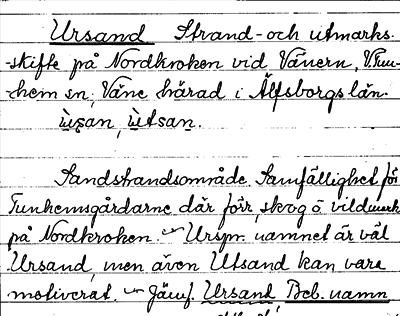 Ursand Strand- och utmarks-
-skifte på Nordkroken vid Vänern, V.Tun-
-hem sn, Väne härad i Älfsborgs län.
ùșan, ùtsan.
Sandstrandsområde. Samfällighet för
Tunhemsgårdarne där förr, skog o vildmark
på Nordkroken. Urspr. namnet är väl
Ursand, men även Utsand kan vara
motiverat. Jämf. Ursand, Beb. namn